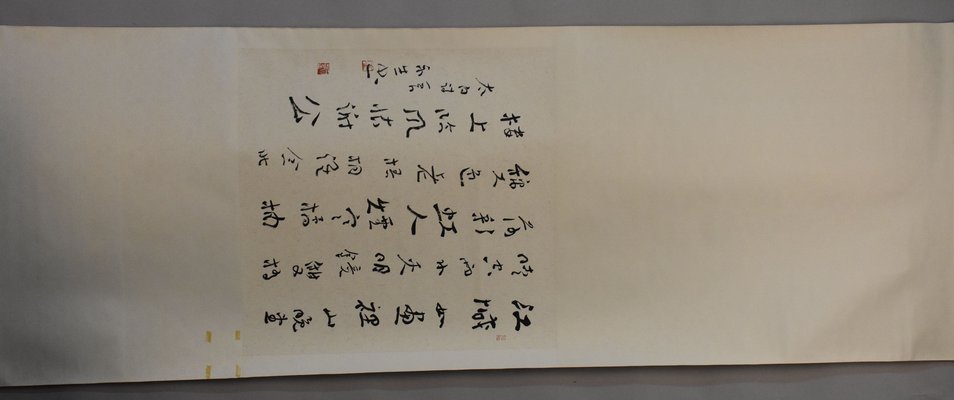 江城如畫裡山曉望
晴空雨水夾明鏡雙橋
落彩虹人煙寒橘柚
秋色老梧桐誰念北
樓上臨風懷謝公
太白詩